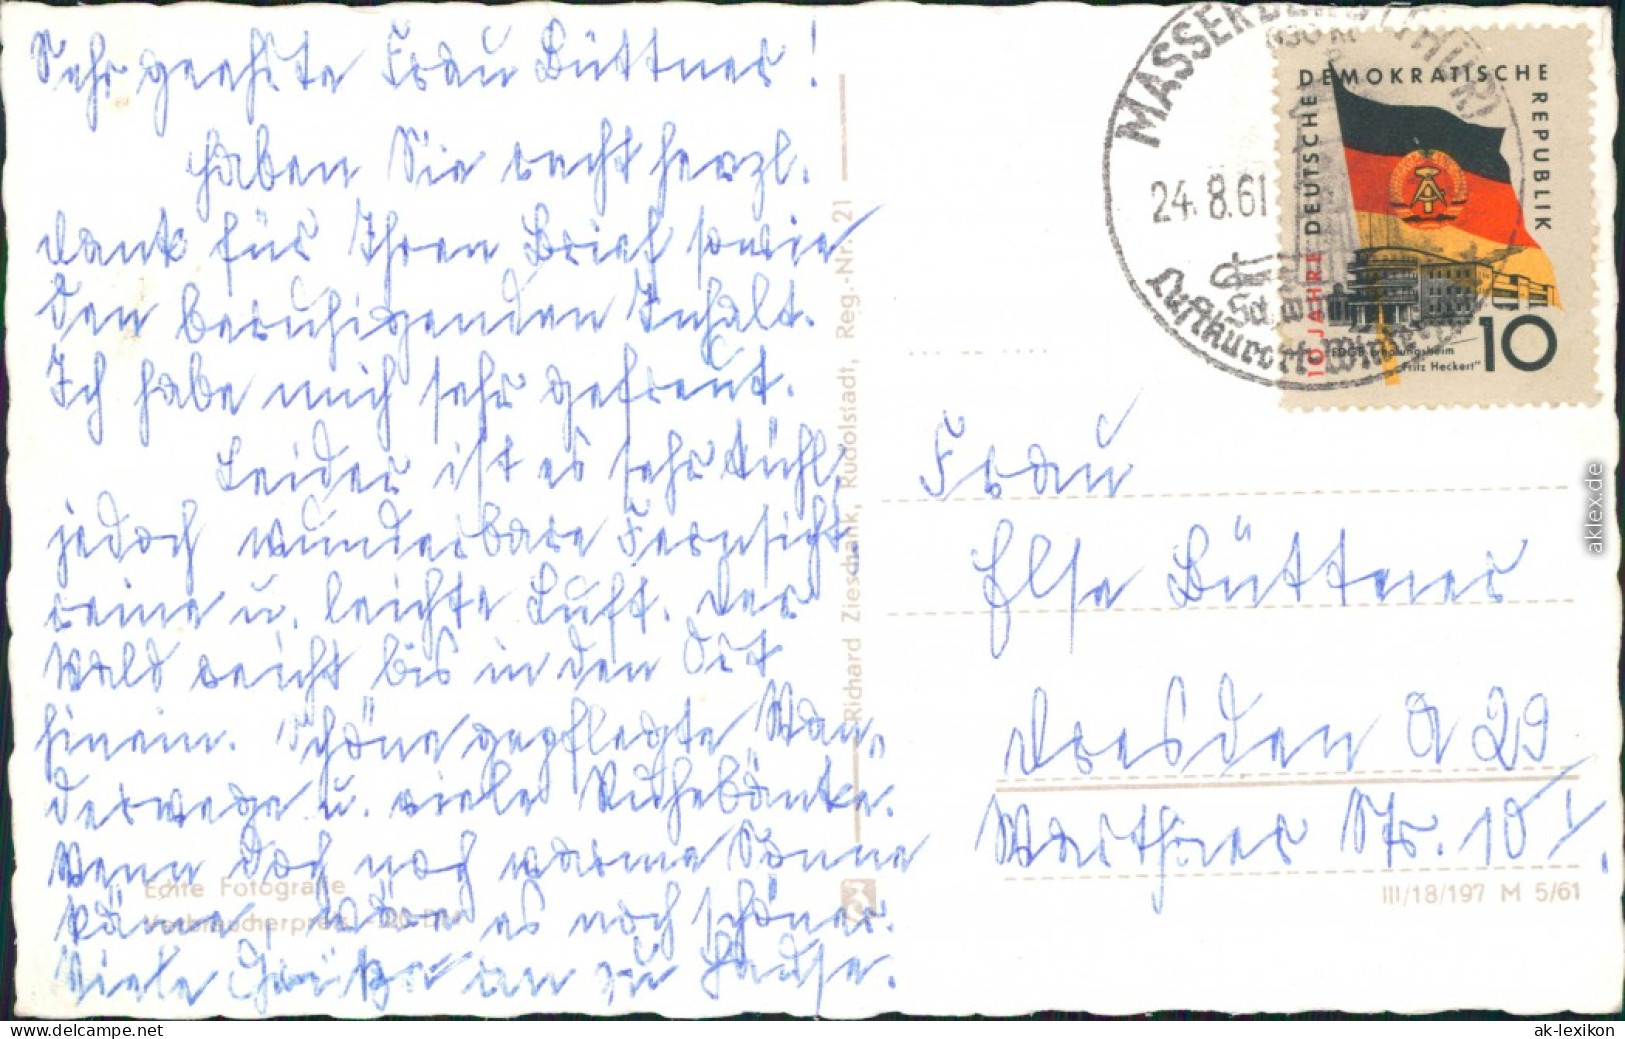 Sehr geehrte Frau Büttner!
haben Sie recht herzl.
Dank für Ihren Brief sowie
den beruhigenden Inhalt.
Ich habe mich sehr gefreut.
Leider ist es sehr kühl,
jedoch wunderbare Fernsicht
reine u. leichte Luft. Der
Wald reicht bis in den Ort
hinein. Schöne gepflegte Wan-
derwege u. viele Ruhebänke.
Wenn doch noch warme Sonne
käme, wäre es noch schöner.
Viele Grüße an zu Hause.
Echte Fotografie
Verbraucherpreis -,20 DM
Richard Zieschank, Rudolstadt, Reg.-Nr. 21
24.8.61
Luftkurort
10 JAHRE DEUTSCHE DEMOKRATISCHE REPUBLIK
FDGB Erholungsheim
"Fritz Heckert"
10
Frau
Else Büttner
Dresden A 29
Warthaer Str. 10 I.
III/18/197 M 5/61
aklex.de
www.delcampe.net
ak-lexikon